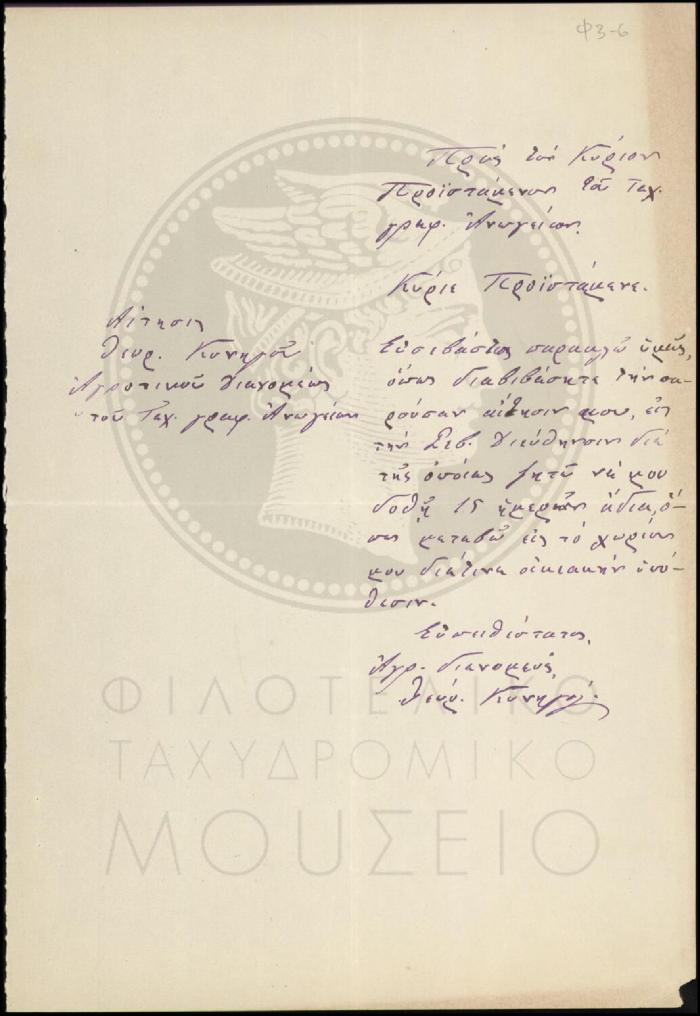 Φ3-6
Πρός τόν Κύριον
Προϊστάμενον τοῦ Ταχ.
γραφ. Ἀνωγείων.
Κύριε Προϊστάμενε.
Αἴτησις
Γεωρ. Κυνηγοῦ
Ἀγροτικοῦ διανομέως
τοῦ Ταχ. γραφ. Ἀνωγείων
Εὐσεβάστως παρακαλῶ ὑμᾶς,
ὅπως διαβιβάσητε τήν πα-
ροῦσαν αἴτησιν μου, εἰς
τήν Σεβ. Διεύθηνσιν διά
τῆς ὁποίας ζητῶ νά μου
δοθῇ 15 ἡμερῶν ἄδεια, ὅ-
πως μεταβῶ εἰς τό χωρίον
μου διά τινα οἰκιακήν ὑπό-
θεσιν.
Εὐπειθέστατος,
Ἀγρ. διανομεύς,
Γεώρ. Κυνηγός
ΦΙΛΟΤΕΛΙΚΟ
ΤΑΧΥΔΡΟΜΙΚΟ
ΜΟΥΣΕΙΟ